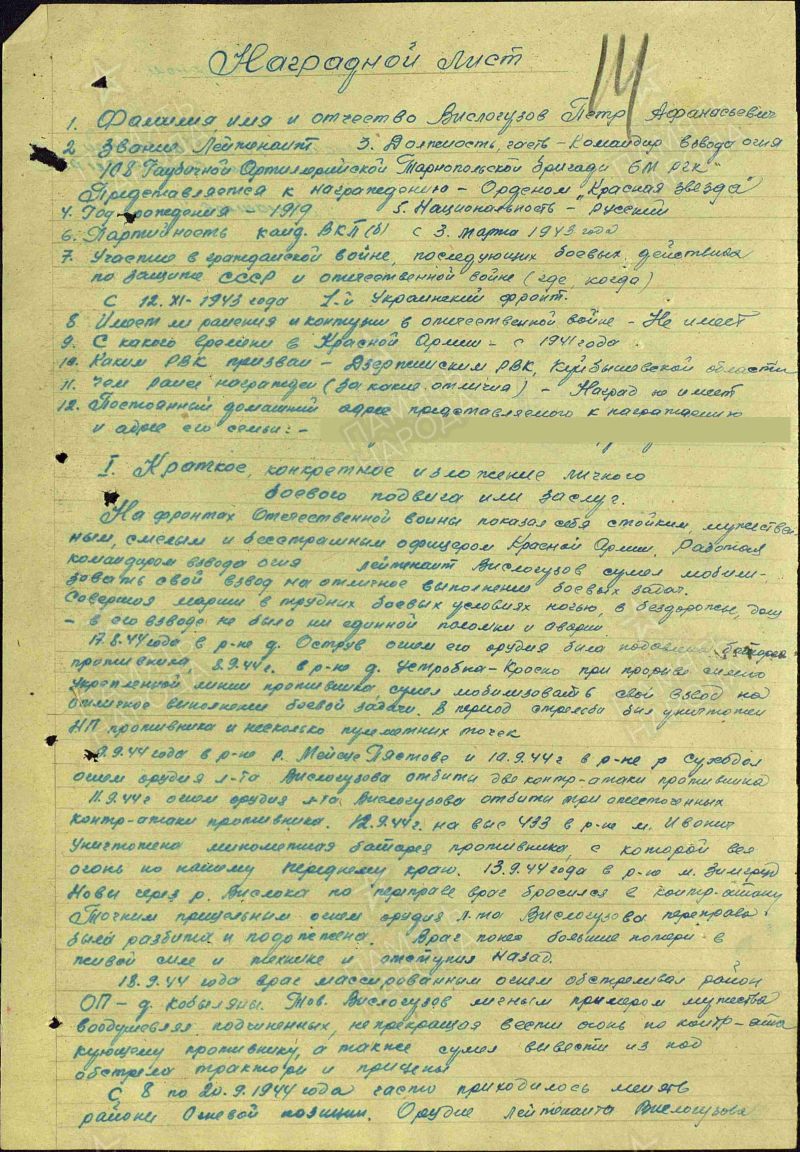 14
Наградной лист
1. Фамилия имя и отчество Вислогузов Петр Афанасьевич
2. Звание Лейтенант 3. Должность, часть – Командир взвода огня
108 Гаубичной Артиллерийской Тарнопольской бригади БМ РГК"
Представляется к награждению – Орденом „Красная звезда"
4. Год рождения – 1919 5. Национальность – Русский
6. Партийность канд. ВКП(б) с 3. марта 1943 года
7. Участие в гражданской войне, последующих боевых действиях
по защите СССР и отечественной войне (где, когда)
С 12. XI – 1943 года 1-й Украинский фронт.
8. Имеет ли ранения и контузии в отечественной войне – Не имеет
9. С какого времени в Красной Армии – с 1941 года
10. Каким РВК призван – Дзержинским РВК, Куйбышевской области
11. Чем ранее награжден (за какие отличия) – Наград не имеет
12. Постоянный домашний адрес представляемого к награждению
и адрес его семьи: –
I. Краткое, конкретное изложение личного
боевого подвига или заслуг.
На фронтах Отечественной войны показал себя стойким, мужествен-
ным, смелым и бесстрашным офицером Красной Армии. Работая
командиром взвода огня лейтенант Вислогузов сумел мобили-
зовать свой взвод на отличное выполнение боевых задач.
Совершая марши в трудних боевых условиях ночью, в бездорожье, дощ
– в его взводе не было ни единной поломки и аварии
17.8.44 года в р-не д. Остров огнем его орудия била подавлена батарея
противника. 8.9.44г. в р-не д. Устробна-Кросно при прориве сильно
укрепленной линии противника, сумел мобилизовать свой взвод на
отличное выполнение боевой задачи. В период стрельби бил уничтожен
НП противника и несколько пулеметних точек
9.9.44 года в р-не р. Мейсце Пястове и 10.9.44 г в р-не р Суходол
огнем орудия л-та Вислогузова отбити две контр-атаки противника
11.9.44г огнем орудия л-та Вислогузова отбити три ожесточенных
контр-атаки противника. 12.9.44г. на выс 433 в р-не м. Ивонич
Уничтожена минометная батарея противника, с которой вел
огонь по нашему переднему краю. 13.9.44 года в р-не м. Змигруд
Новы через р. Вислока по переправе враг бросился в контр-атаку
Точним прицельним огнем орудия л-та Вислогузова переправа
была разбита и подожжена. Враг понес большие потери в
живой силе и технике и отступил назад.
18.9.44 года враг массированным огнем обстреливал район
ОП – д. Кобыляны. Тов. Вислогузов личным примером мужества
воодушевлял подчиненных, не прекращая вести огонь по контр-ата
кующему противнику, а также сумел вывести из под
обстрела трактори и прицепы
С 8 по 20.9.1944 года часто приходилось менять
райони Огневой позиции. Орудие лейтенанта Вислогузова
ПАМЯТЬ НАРОДА